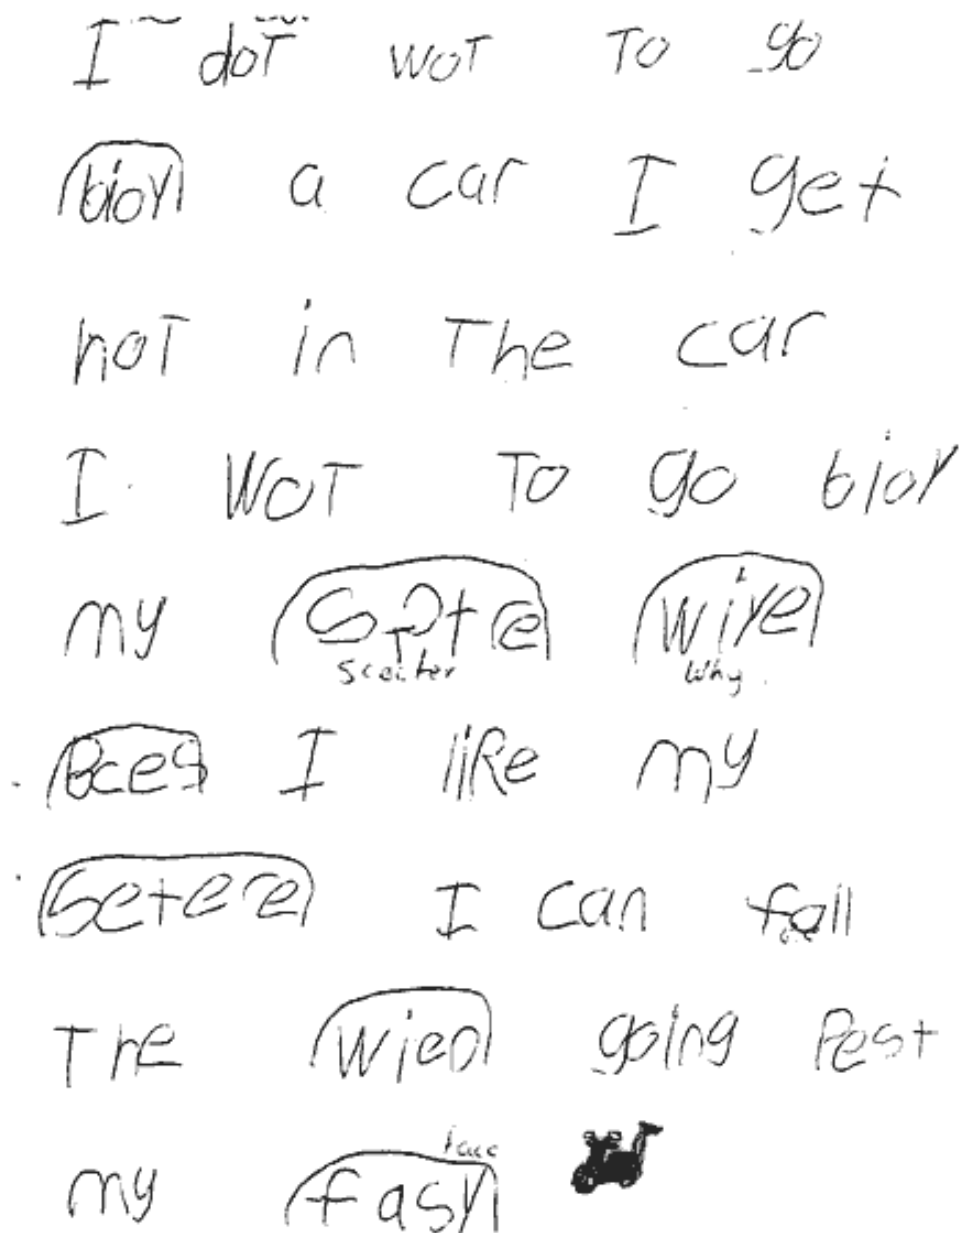 I dot wot To go
bioy a car I get
not in The car
I wot To go bioy
my scotre wiye
scooter why.
Bces I like my
Scterre I can fall
The wien going Pest
my fasy
face